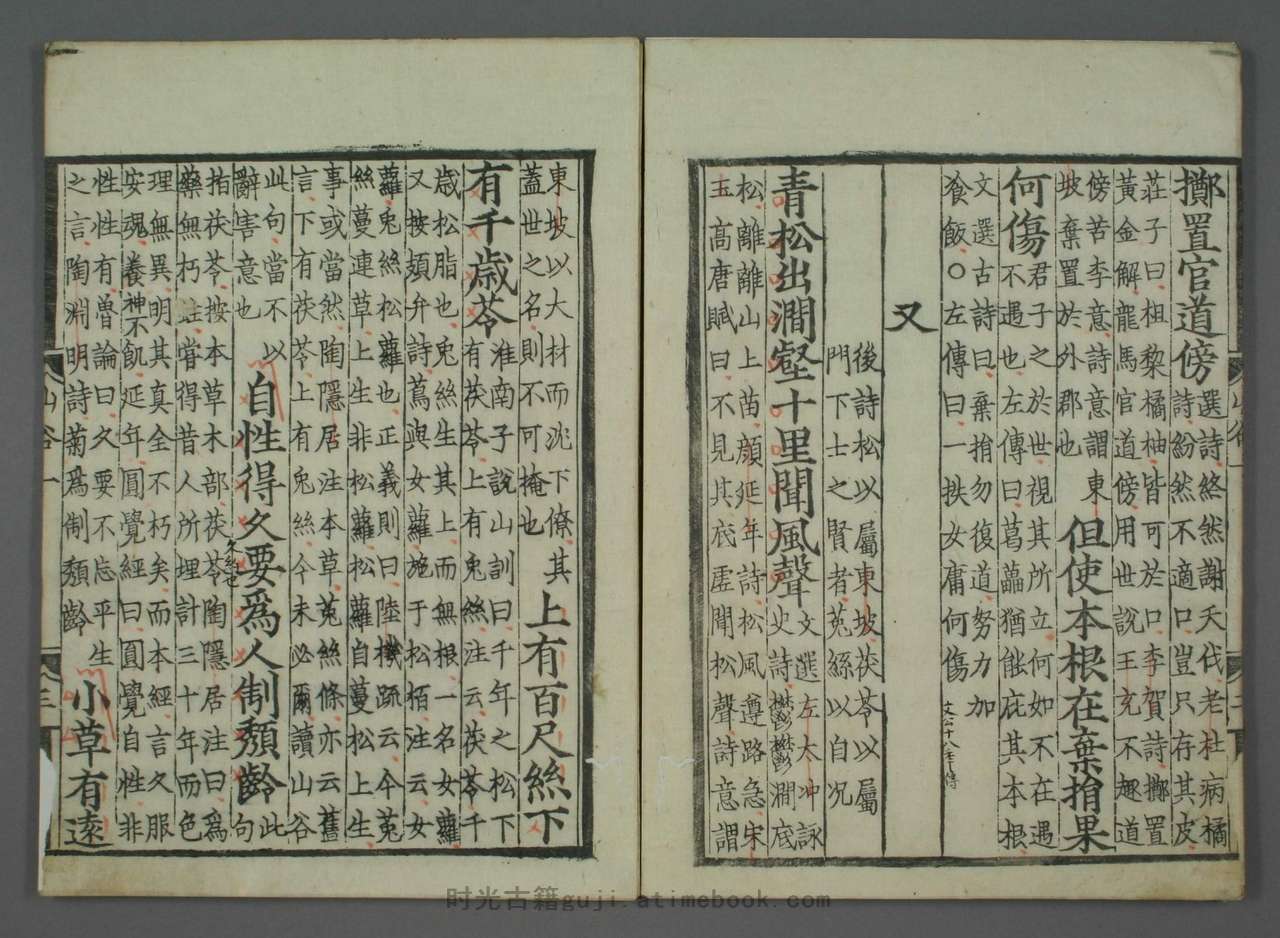 擲置官道傍
選詩終然謝天伐老杜病橘
詩紛然不適口豈只存其皮
莊子曰柤黎橘柚皆可於口李賀詩擲置
黃金解龍馬官道傍用世說王充不趣道
傍苦李意詩意謂東
坡棄置於外郡也
但使本根在棄捐果
何傷
君子之於世視其所立何如不在遇
不遇也左傳曰葛藟猶能庇其本根
文選古詩曰棄捐勿復道努力加
飡飯○左傳曰一抶女庸何傷
文公十八年傳
又
後詩松以屬東坡茯苓以屬
門下士之賢者菟絲以自况
青松出澗壑十里聞風聲
文選左太冲詠
史詩欝欝澗底
松離離山上苗顏延年詩松風遵路急宋
玉高唐賦曰不見其底虛聞松聲詩意謂
東坡以大材而沈下僚其
蓋世之名則不可掩也
上有百尺絲下
有千歲苓
淮南子說山訓曰千年之松下
有茯苓上有兔絲注云茯苓千
歲松脂也兔絲生其上而無根一名女蘿
又按頍弁詩蔦與女蘿施于松栢注云女
蘿兔絲松蘿也正義則曰陸機疏云今菟
絲蔓連草上生非松蘿松蘿自蔓松上生
事或當然陶隱居注本草菟絲條亦云舊
言下有茯苓上有兔絲今未必爾讀山谷
此句當不以
辭害意也
自性得久要為人制頹齡
此句
指茯苓按本草木部茯苓陶隱居注曰為
藥無朽蛀甞得昔人所埋計三十年而色
理無異明其真全不朽矣而本經言久服
安魂養神不飢延年圓覺經曰圓覺自性非
性性有魯論曰久要不忘平生
之言陶淵明詩菊為制頹齡
小草有遠
山谷一
三
时光古籍guji.atimebook.com